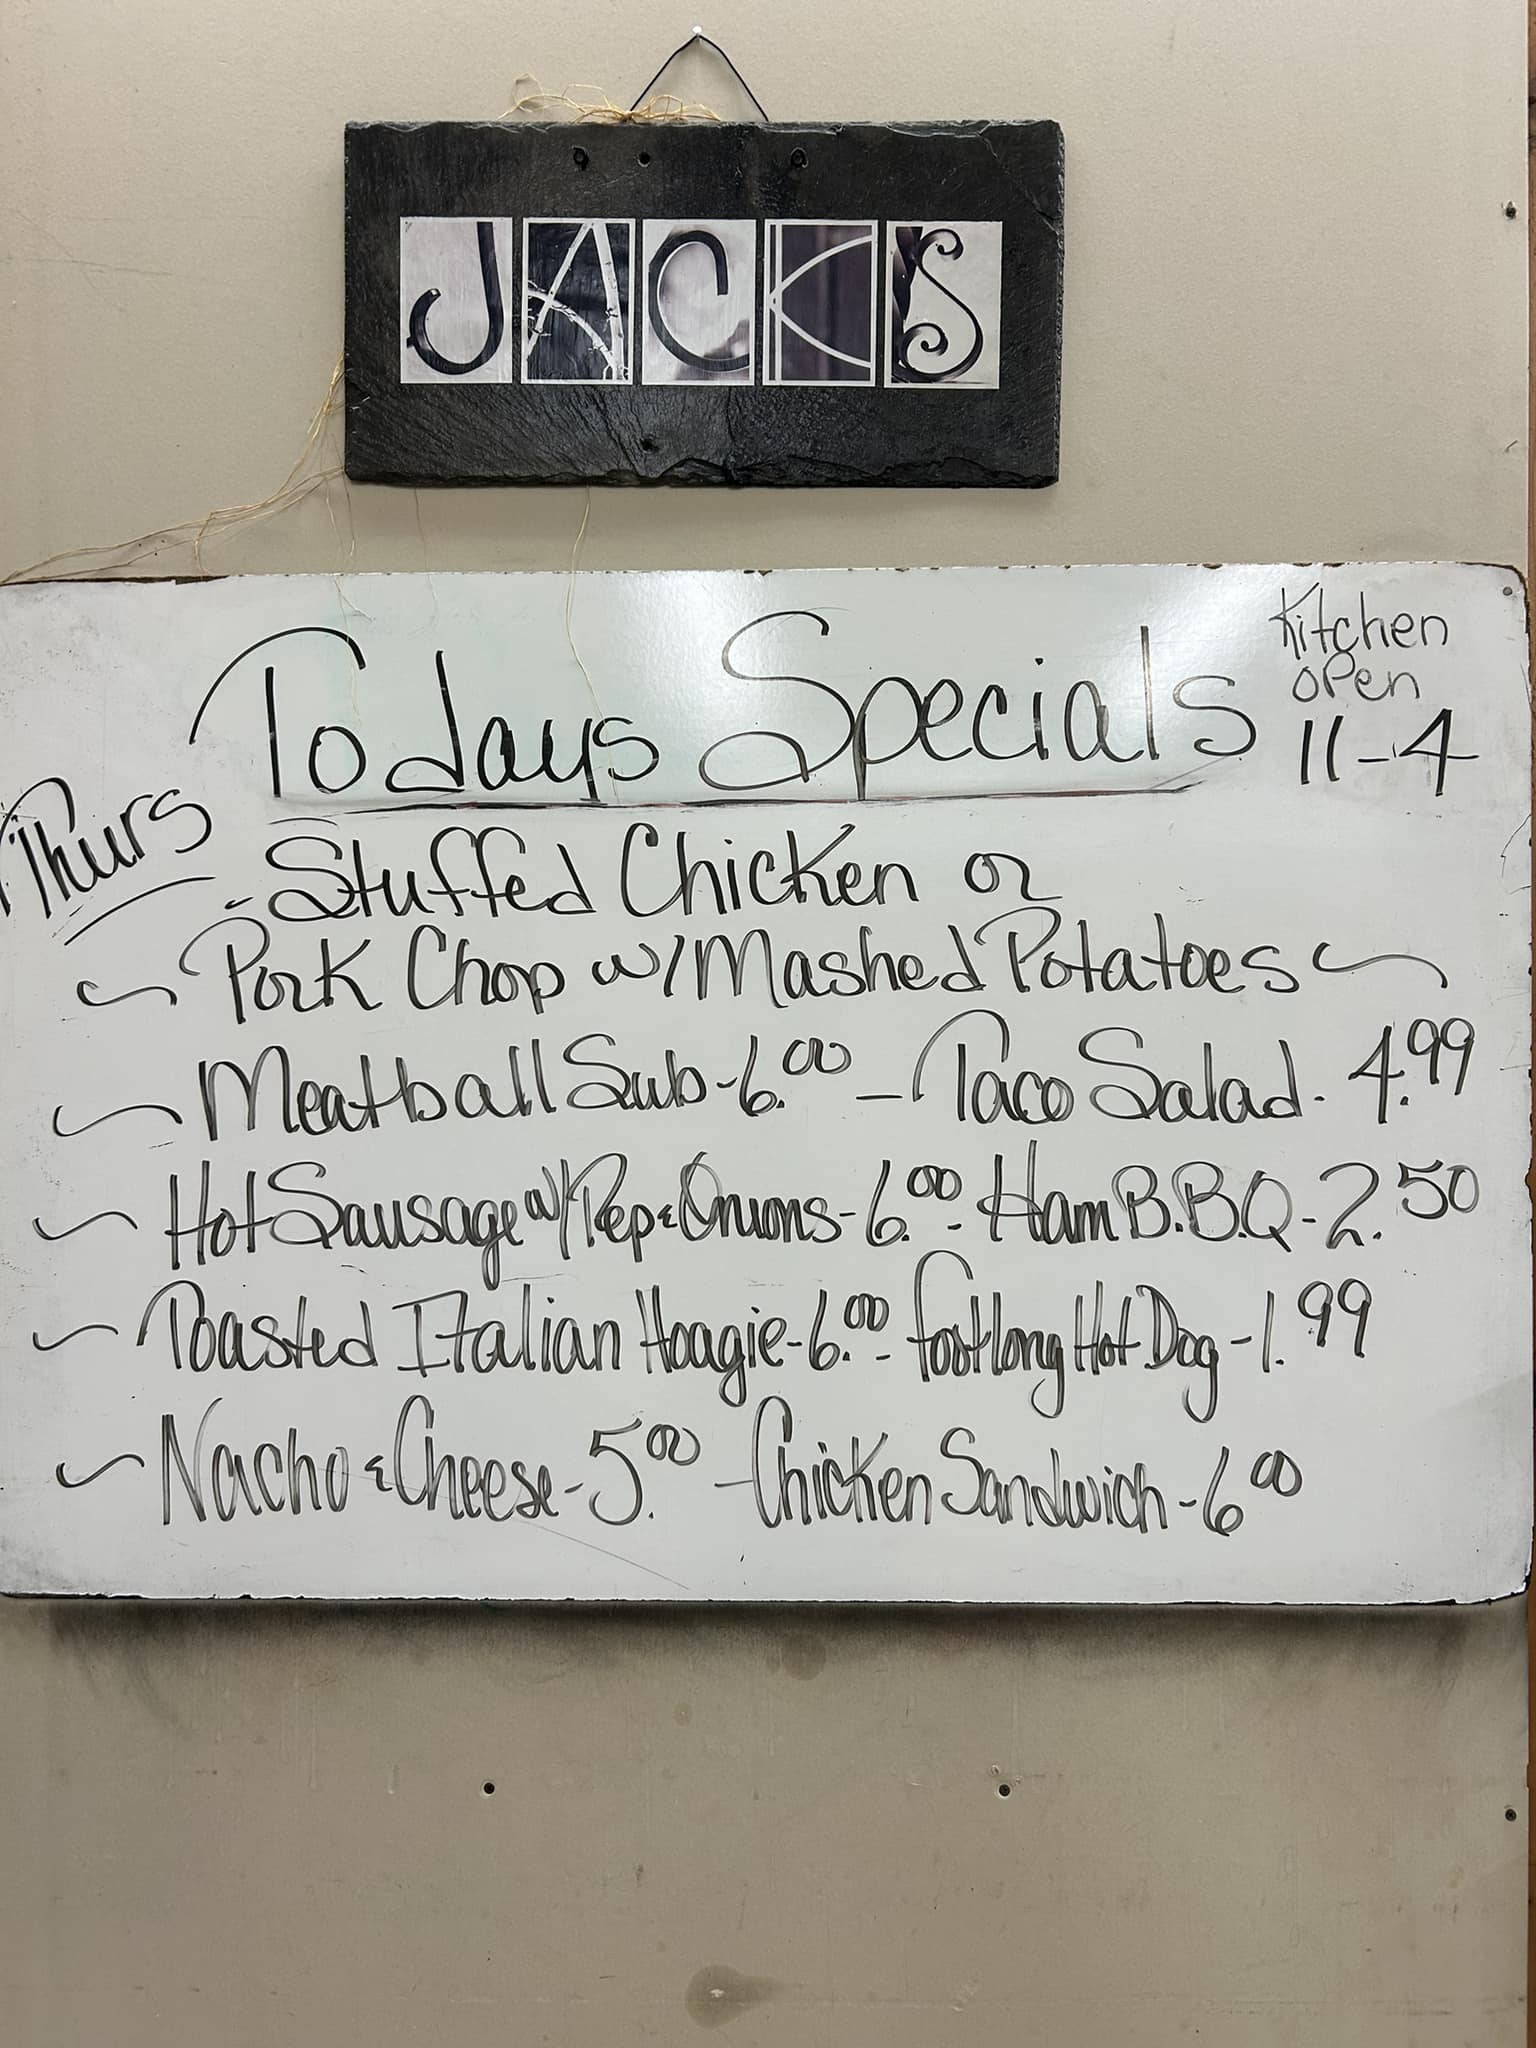 JACKS
Todays Specials
Kitchen
open
11-4
Thurs
Stuffed Chicken or
Pork Chop w/ Mashed Potatoes
Meatball Sub - 6.00 - Taco Salad - 4.99
Hot Sausage w/ Pep & Onions - 6.00 - Ham B.B.Q - 2.50
Toasted Italian Hoagie - 6.00 - footlong Hot Dog - 1.99
Nacho & Cheese - 5.00 - Chicken Sandwich - 6 00